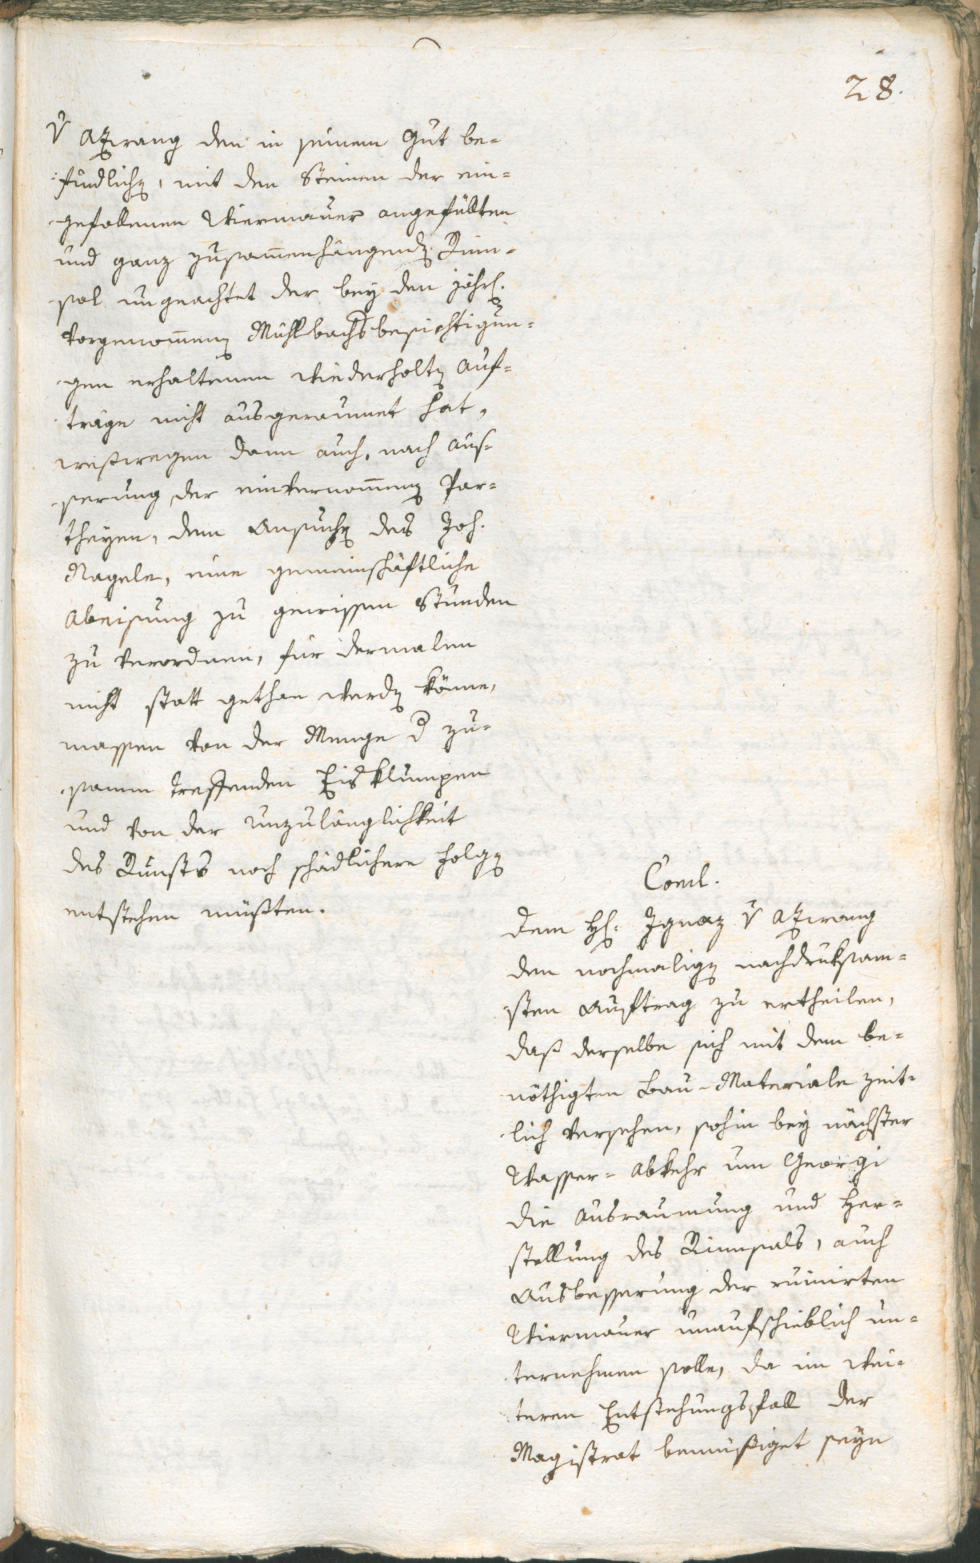 28.
v Atzwang den in seinem Gut be-
findlich, mit den Steinen der ein-
gefallenen Wiermauer angefüllten
und ganz zusammenhängend. Rinn-
sal ungeachtet der bey den jährl.
vorgenommen Mühlbachsbesichtigun-
gen erhaltenen wiederholten Auf-
träge nicht ausgeraumet hat,
weßwegen dann auch, nach Aus-
serung der einvernommen Par-
theyen, dem Ansuchen des Joh.
Nagele, eine gemeinschäftliche
Abeisung zu gewissen Stunden
zu verordnen, für dermalen
nicht statt gethan werden könne,
massen von der Menge d zu-
samm treffenden Eisklumpen
und von der Unzulänglichkeit
des Runsts noch schädlichere Folgen
entstehen müßten.
Concl.
Dem H. Ignaz v Atzwang
den nochmaligen nachdruksam-
sten Auftrag zu ertheilen,
daß derselbe sich mit dem be-
nöthigten Bau-Materiale zeit-
lich versehen, sohin bey nächster
Wasser-Abkehr um Georgi
die Ausraumung und Her-
stellung des Rinnsals, auch
Ausbesserung der ruinirten
Wiermauer unaufschieblich un-
ternehmen solle, da im wei-
teren Entstehungsfall der
Magistrat bemüßiget seyn